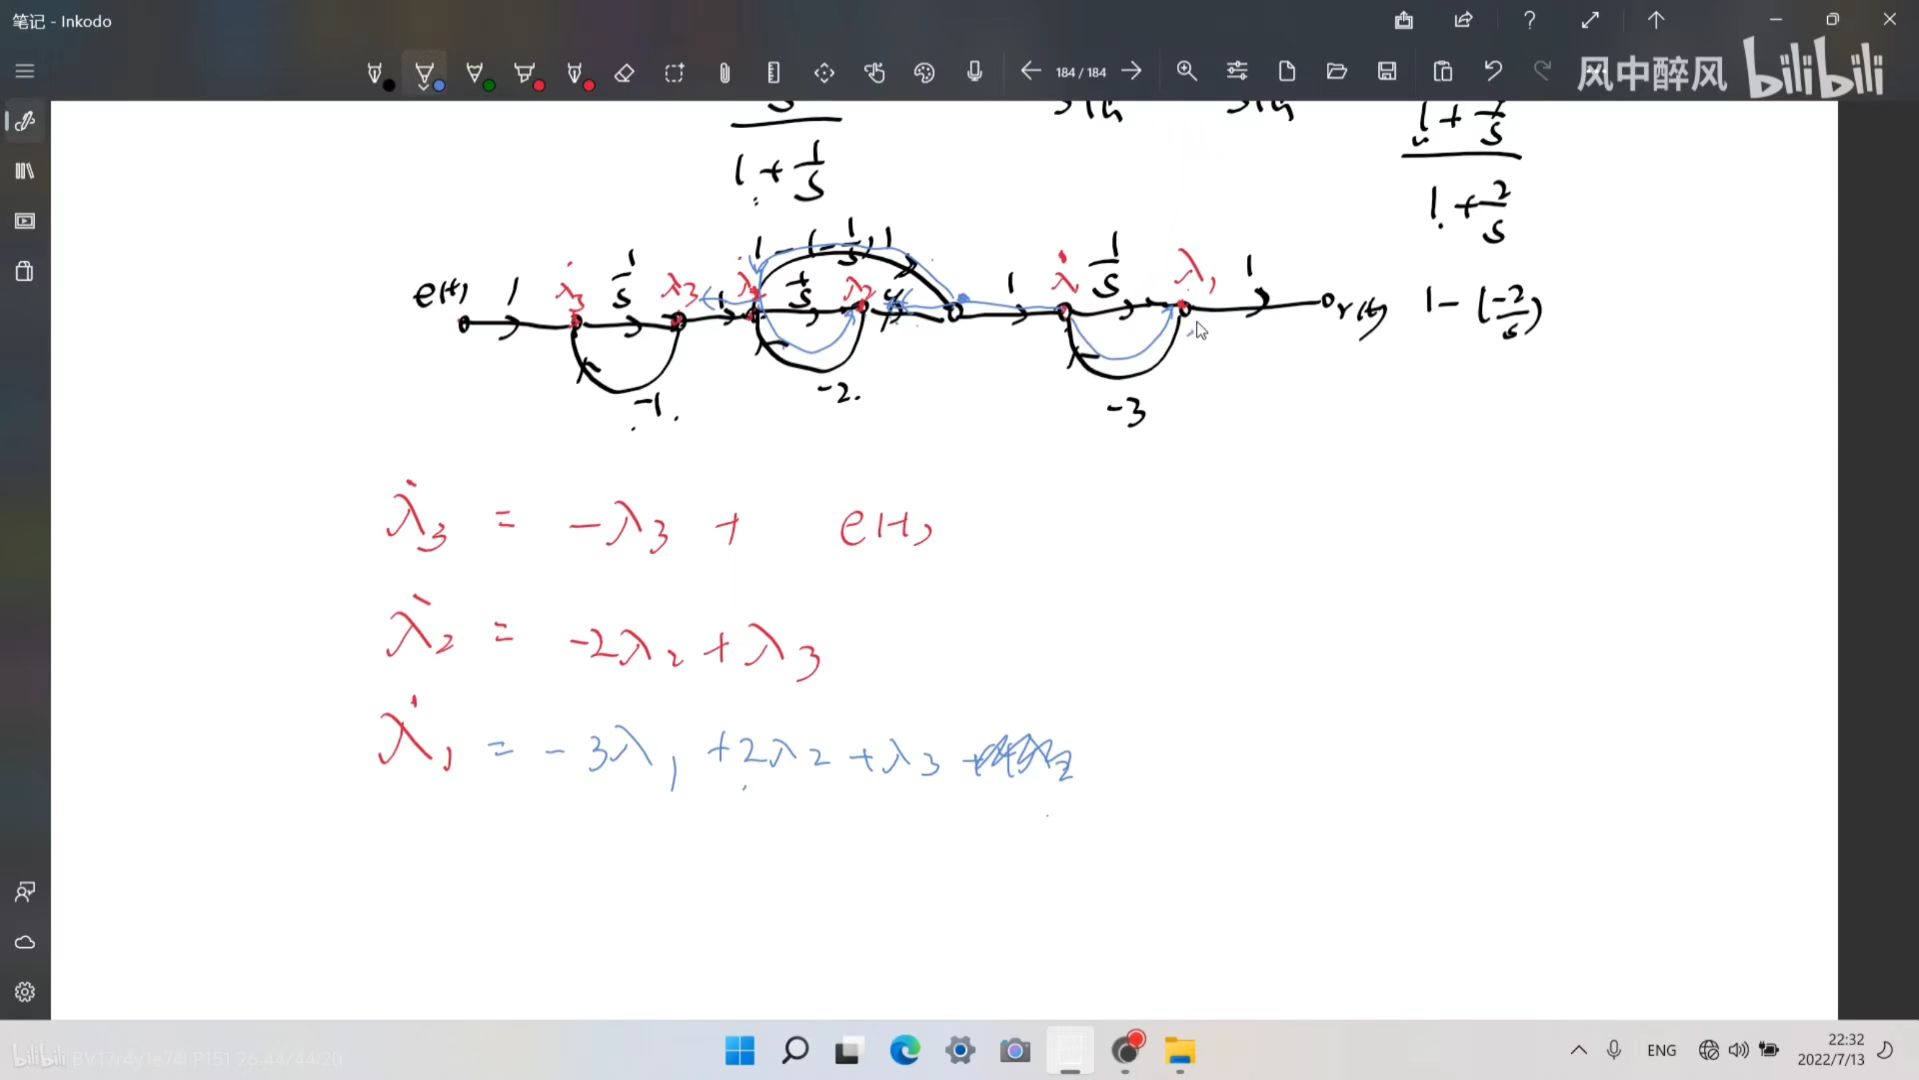 笔记 - Inkodo
184 / 184
风中醉风 bilibili
1 + 1/s
1 + 2/s
e(t) 1 λ̇3 1/s λ3 1 1/s λ2 4 1 λ̇ 1/s λ1 1 r(t) 1 - (-2/s)
1 - (-1/s) 1
-1.
-2.
-3
λ̇3 = -λ3 + e(t)
λ̇2 = -2λ2 + λ3
λ̇1 = -3λ1 + 2λ2 + λ3
bilibili BV17r4y1e74i P151 26:44/44:20
ENG
22:32
2022/7/13